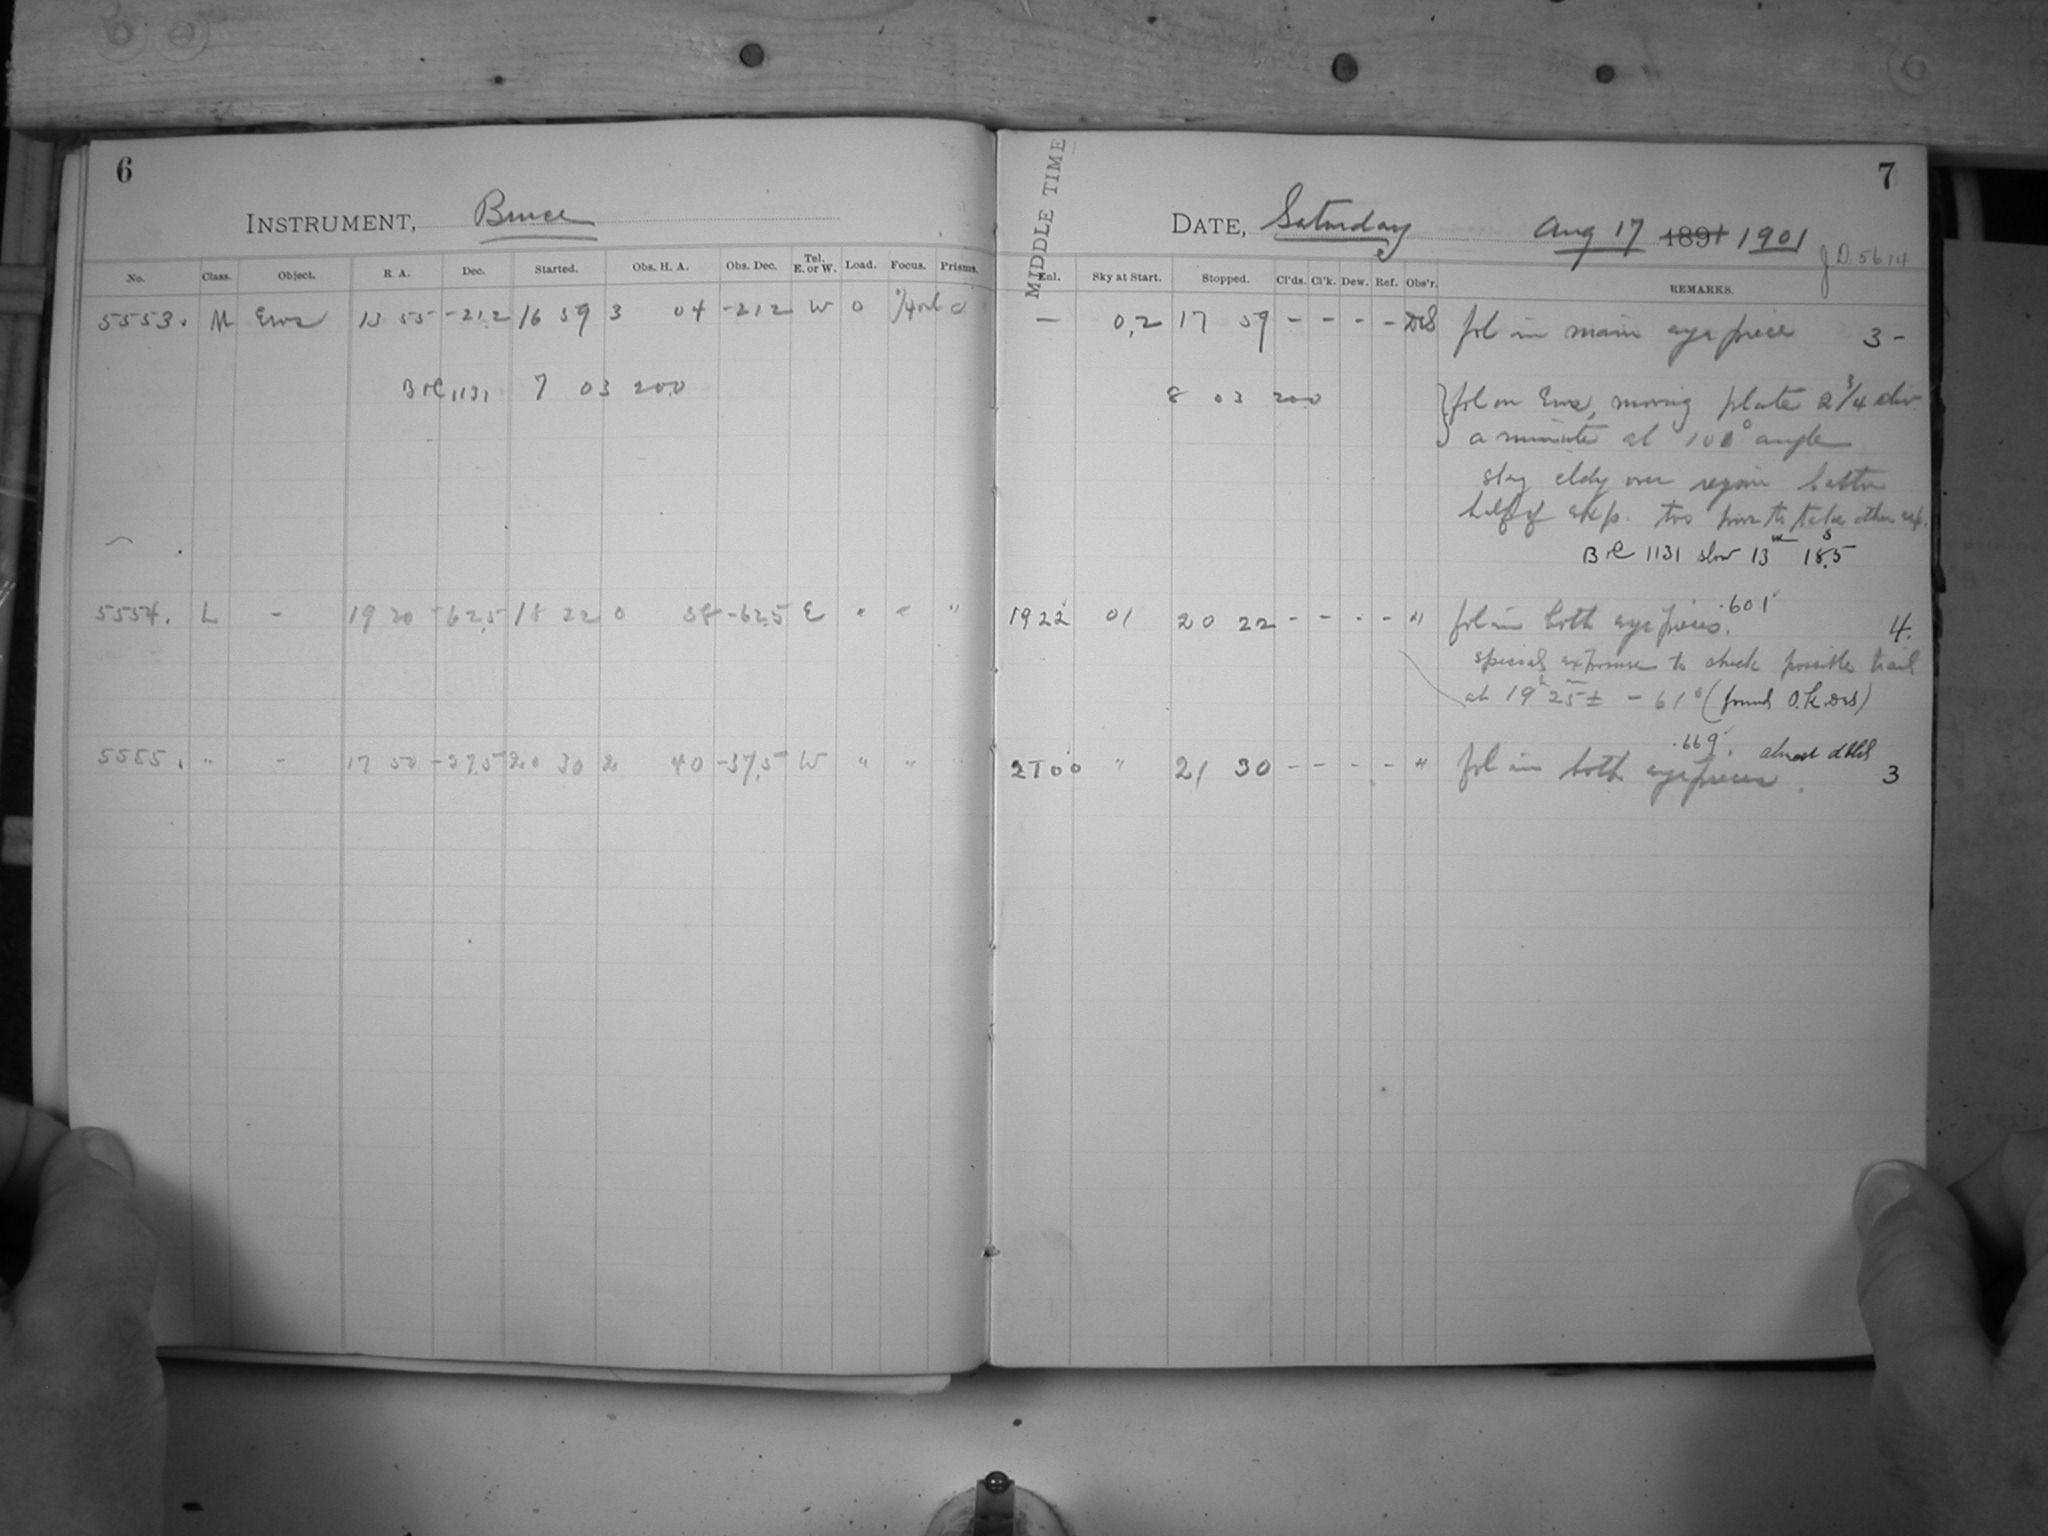 6
INSTRUMENT, Bruce
No. Class. Object. R. A. Dec. Started. Obs. H. A. Obs. Dec. Tel. E. or W. Load. Focus. Prisms.
5553. M Eros 13 55 -21.2 16 59 3 04 -21.2 W 0 0
B&C 1131 7 03 20.0
5554. L - 19 20 -62.5 18 22 0 58 -62.5 E " " "
5555. " - 17 50 -37.5 20 30 2 40 -37.5 W " " "
7
MIDDLE TIME
DATE, Saturday Aug 17 1891 1901
J.D. 5614
Enl. Sky at Start. Stopped. Cl'ds. Cl'k. Dew. Ref. Obs'r. REMARKS.
— 0.2 17 59 - - - - DeS fol in main eye piece 3-
8 03 20.0 fol on Eros, moving plate 2 3/4 div
a minute at 100° angle
sky cldy over region latter
half of exp. too to take other exp.
B&C 1131 slow 13m 18.5s
1922 01 20 22 - - - - " fol in both eye pieces. .601 4.
special exposure to check possible trail
at 19h 25m ± - 61° (found O.K. DeS)
.669. almost dbld
2100 " 21 30 - - - - " fol in both eyepieces. 3